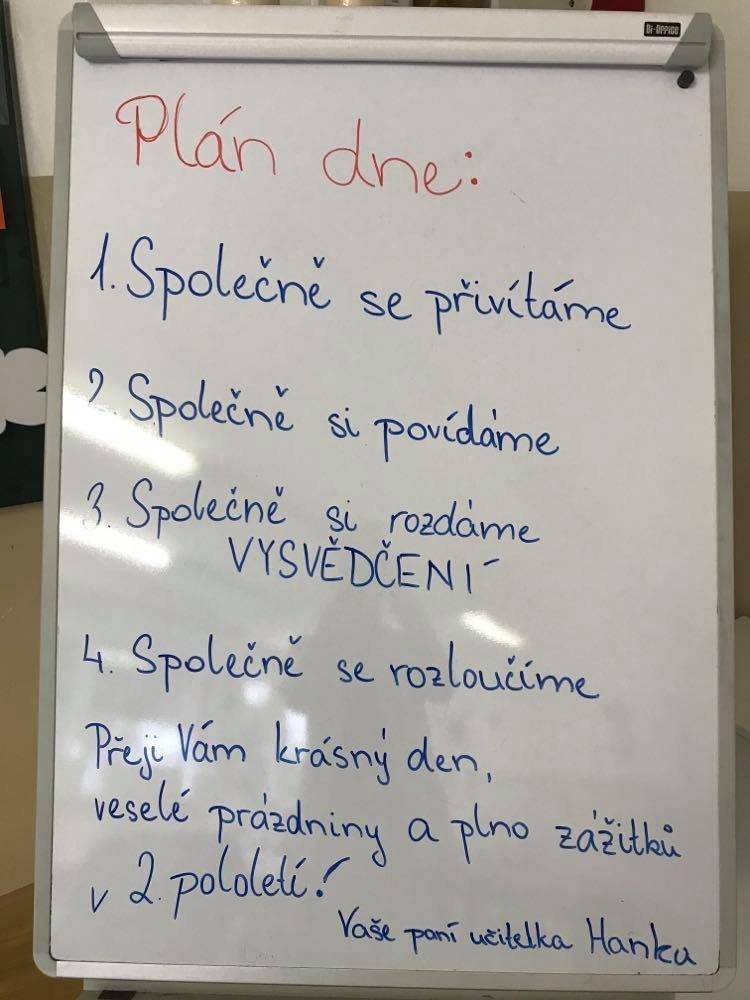 Bi-OFFICE
Plán dne:
1. Společně se přivítáme
2. Společně si povídáme
3. Společně si rozdáme
VYSVĚDČENÍ
4. Společně se rozloučíme
Přeji Vám krásný den,
veselé prázdniny a plno zážitků
v 2. pololetí!
Vaše paní učitelka Hanka